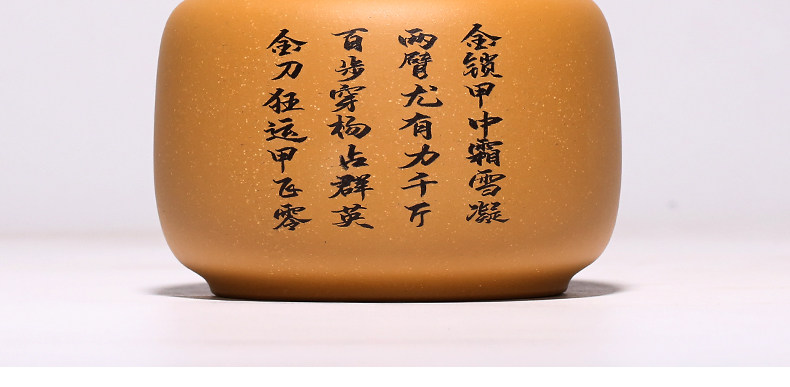 金锁甲中霜雪凝
两臂尤有力千斤
百步穿杨占群英
金刀狂运甲正零